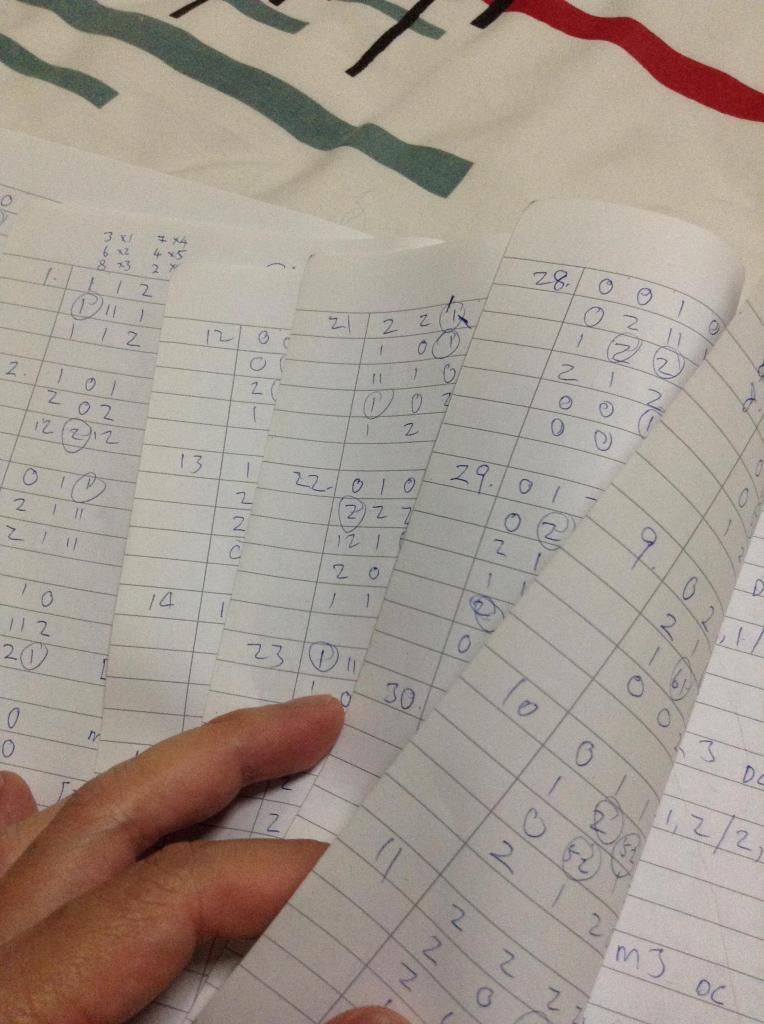 3 x1 7 x4
6 x2 4 x5
8 x3 2 x
1. 1 1 2
1 11 1
1 1 2
2. 1 0 1
2 0 2
12 2 12
0 1 1
2 1 11
2 1 11
1 0
11 2
2 1
0
0
12 0
0
2
1
13 1
2
2
0
14 1
21 2 2 1
1 0 1
11 1 0
1 0 2
1 2
22. 0 1 0
2 2 2
12 1
2 0
1 1
23 1 11
1 0
2
28. 0 0 1 0
0 2 11
1 2 2
2 1 2
0 0 1
0 0
29. 0 1
0 2
2 1
1 1
2
0
30.
9. 0 2
2 1
1 61
0 0
10 0 1
1 1
0 2
2 52 52
1 2
11 2 2 2
2 0
2
, 1/
3 DC
1, 2/2,
m3 OC